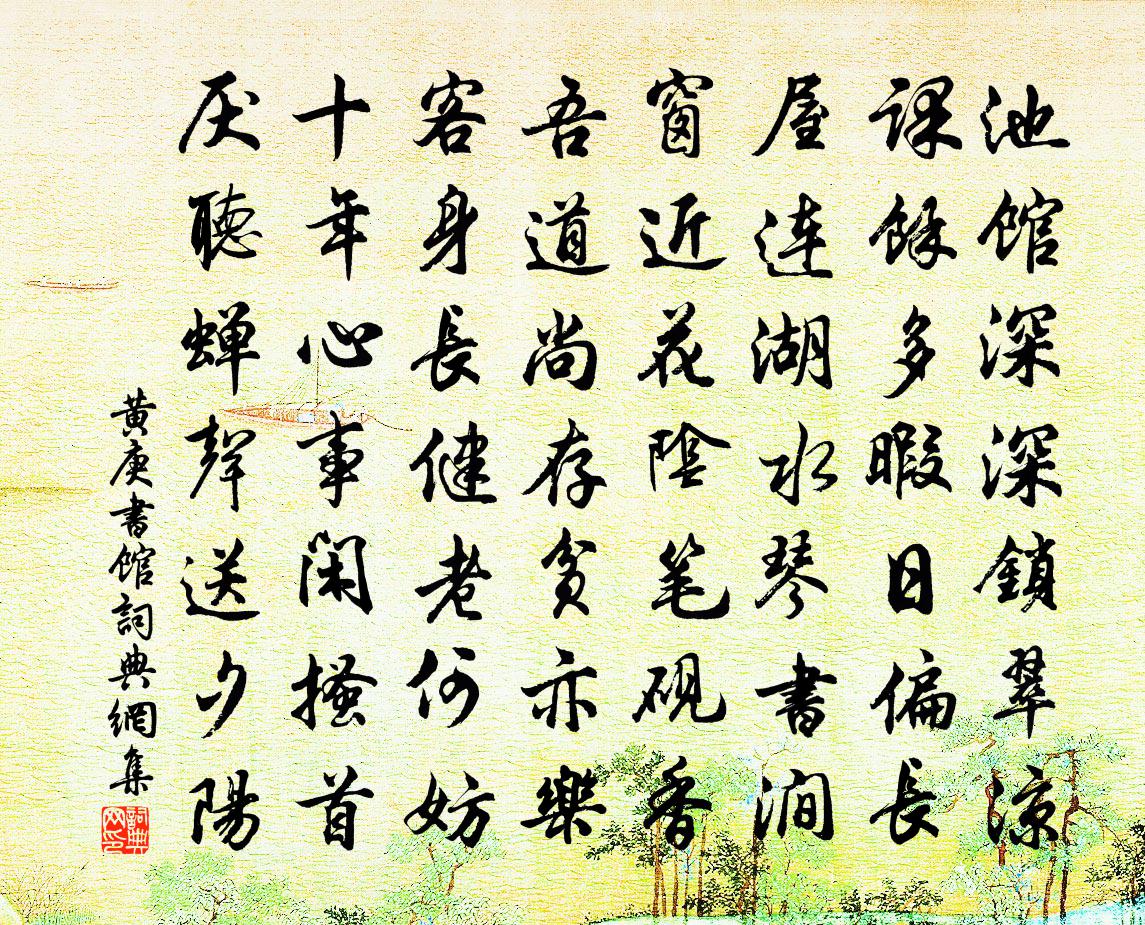 池馆深深鎖翠涼
課餘多暇日偏長
屋連湖水琴書潤
窗近花陰笔硯香
吾道尚存貧亦樂
客身長健老何妨
十年心事閑搔首
厌聽蝉聲送夕陽
黄庚書馆詞典網集
詞典网印